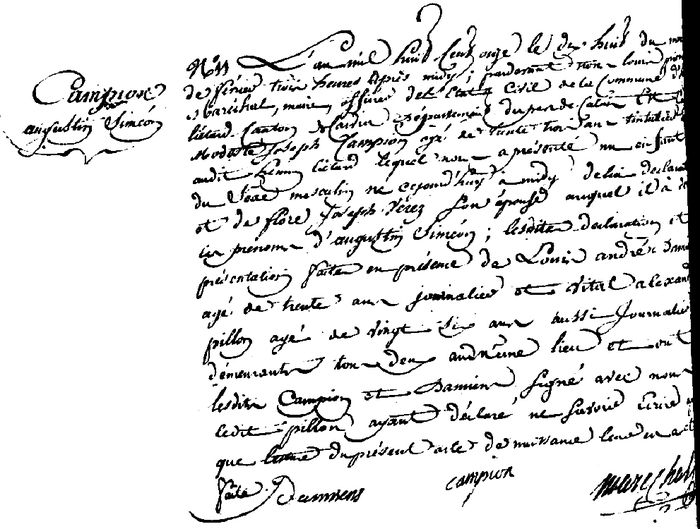 Campion
augustin Siméon
N° 11 L'an mil huit Cent onze le dix huit du mois
de fevrier trois heures après midy; pardevant nous louis
Maréchal, maire, officier de l'Etat Civil de la Commune
liétard Canton de Carvin Département du pas de Calais Est
Modeste Joseph Campion agé de trente trois ans
audit henin liétard lequel nous a présenté un enfant
du Sexe masculin né cejourd'huy à midy de lui déclarant
et de flore Joseph Pérez Son épouse auquel il a
les prénoms d'augustin Siméon; lesdites déclaration et
présentation faite en présence de Louis andré
agé de trente ans journalier et vital alexand
pillon agé de vingt six ans aussi Journalier
demeurants tous deux audit même lieu et ont
lesdits Campion et Damiens Signé avec nous
ledit pillon ayant déclaré ne Savoir Ecrire
que lecture du présent acte de naissance leur en a été
faite. Damiens campion Marechal